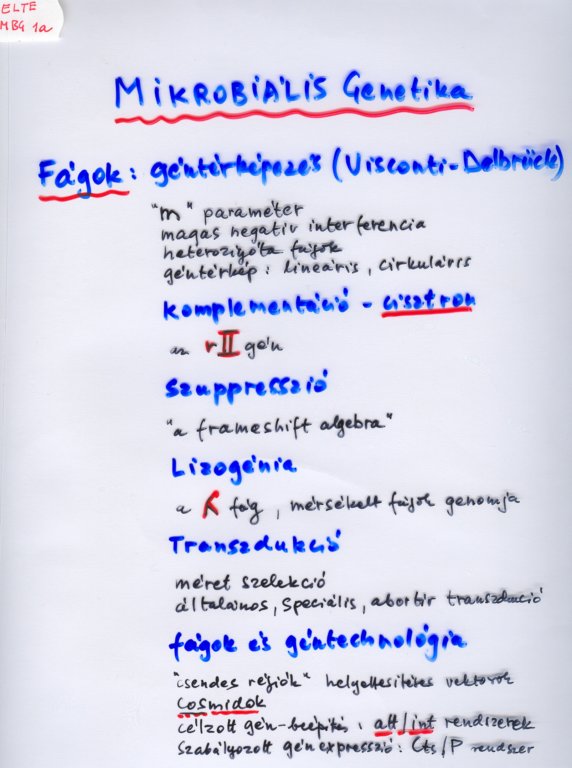 ELTE
MBG 1a
MIKROBIÁLIS Genetika
Fágok: géntérképezés (Visconti-Delbrück)
"m" paraméter
magas negatív interferencia
heterozigóta fágok
géntérkép: lineáris, cirkuláris
Komplementáció - cisztron
az rII gén
Szuppresszió
"a frameshift algebra"
Lizogénia
a λ fág, mérsékelt fágok genomja
Transzdukció
méret szelekció
általános, speciális, abortív transzdukció
fágok és géntechnológia
"csendes régiók" helyettesítéses vektorok
Cosmidok
célzott gén-beépítés: att/int rendszerek
szabályozott gén expresszió: Cts/P rendszer